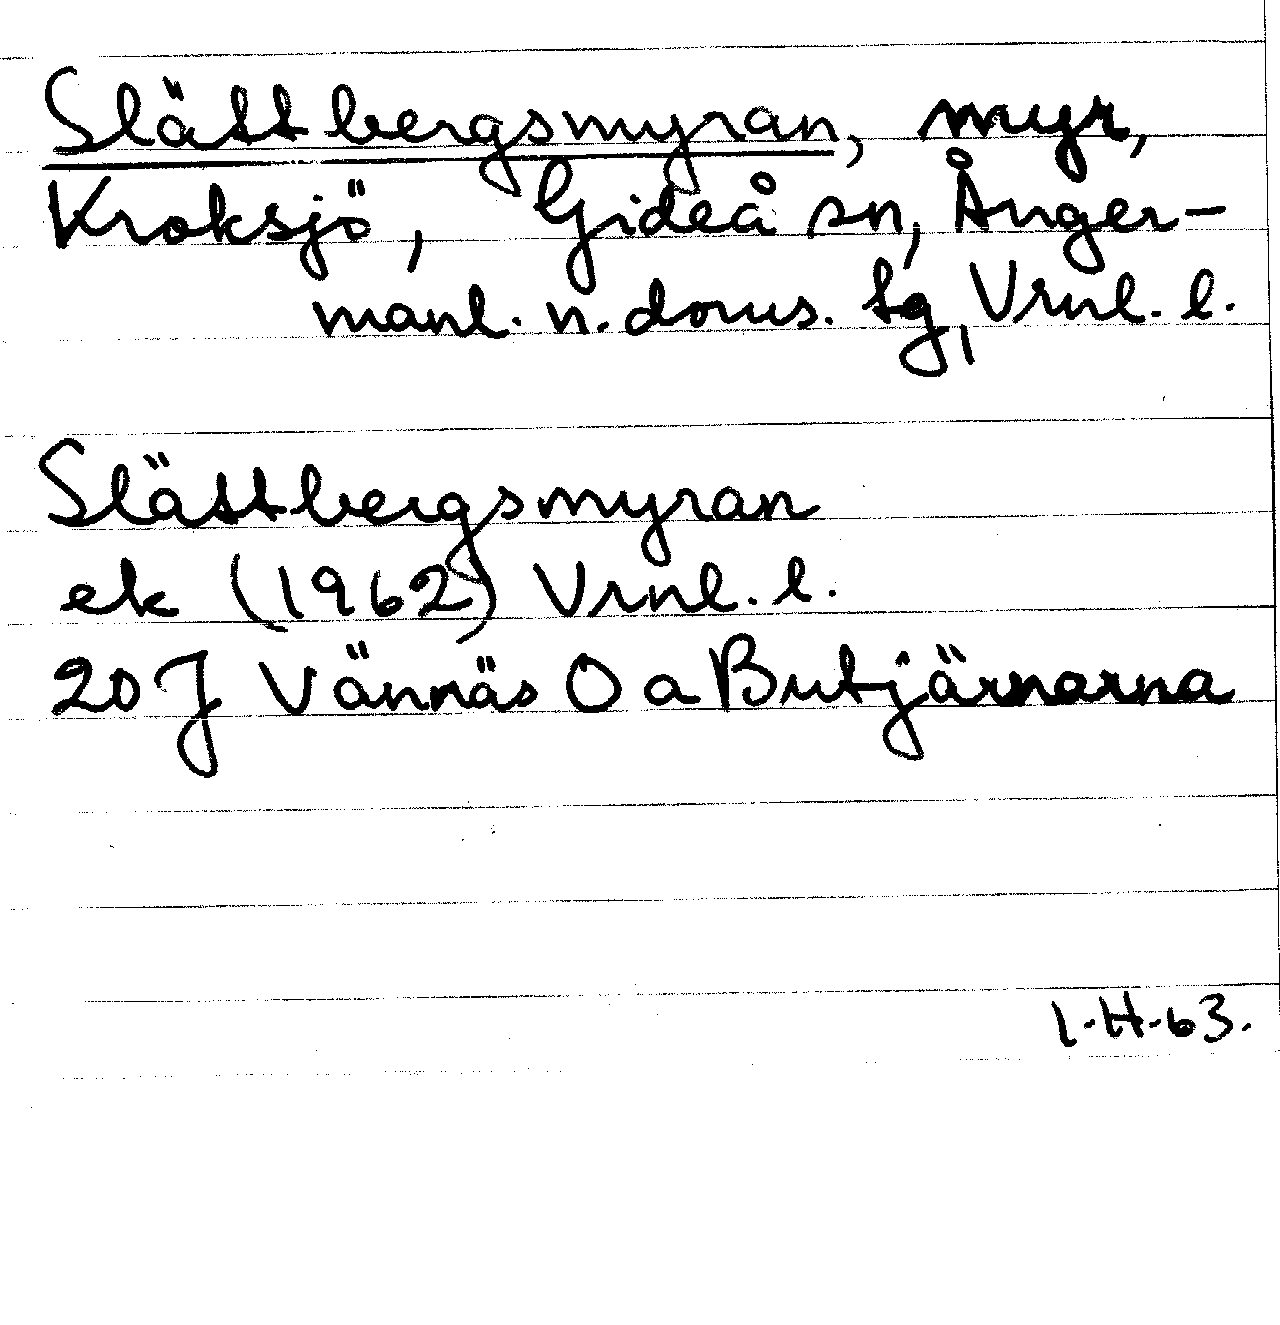 Slättbergsmyran, myr,
Kroksjö, Gideå sn, Ånger-
manl. n. doms. tg, Vrnl. l.
Slättbergsmyran
ek (1962) Vrnl. l.
20 J Vännäs O a Butjärnarna
I.H.63.